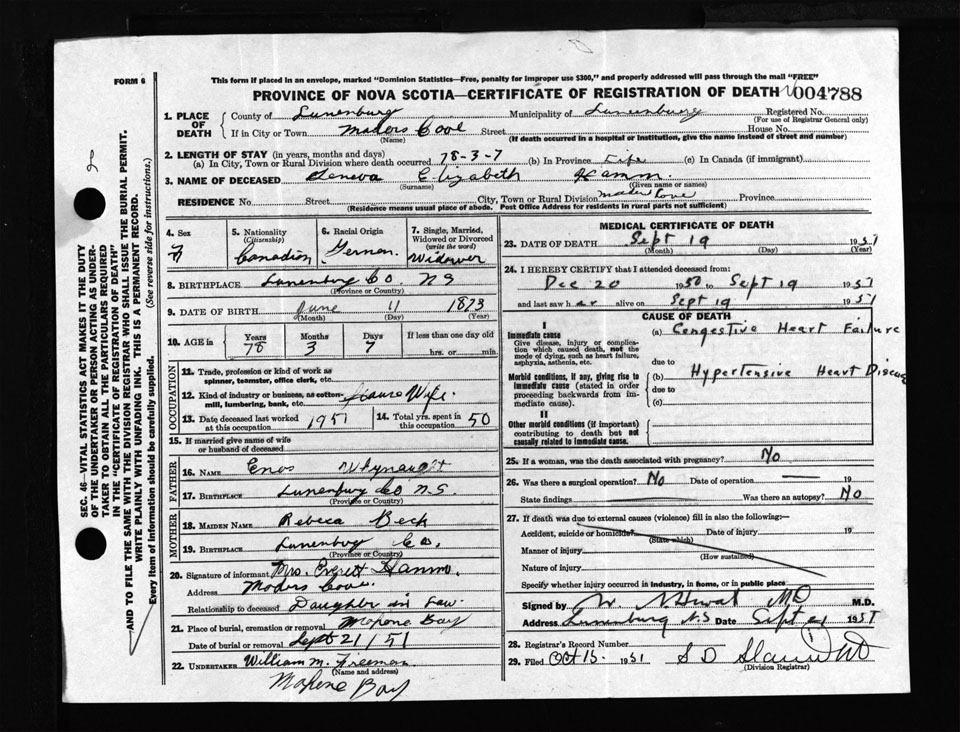 FORM 6
This form if placed in an envelope, marked "Dominion Statistics—Free, penalty for improper use $300," and properly addressed will pass through the mail "FREE"
PROVINCE OF NOVA SCOTIA—CERTIFICATE OF REGISTRATION OF DEATH 004788
1. PLACE OF DEATH
County of Lunenburg Municipality of Lunenburg Registered No.
(For use of Registrar General only)
If in City or Town Maders Cove Street House No.
(Name) (If death occurred in a hospital or institution, give the name instead of street and number)
2. LENGTH OF STAY (in years, months and days)
(a) In City, Town or Rural Division where death occurred 78-3-7 (b) In Province Life (c) In Canada (if immigrant)
3. NAME OF DECEASED Geneva Elizabeth Hamm
(Surname) (Given name or names)
RESIDENCE No. Street City, Town or Rural Division Mader Cove Province
(Residence means usual place of abode. Post Office Address for residents in rural parts not sufficient)
4. Sex F
5. Nationality (Citizenship) Canadian
6. Racial Origin German
7. Single, Married, Widowed or Divorced (write the word) Widower
8. BIRTHPLACE Lunenburg Co NS
(Province or Country)
9. DATE OF BIRTH June 11 1873
(Month) (Day) (Year)
10. AGE in Years 78 Months 3 Days 7 If less than one day old hrs. or min.
OCCUPATION
11. Trade, profession or kind of work as spinner, teamster, office clerk, etc.
12. Kind of industry or business, as cotton-mill, lumbering, bank, etc. House Wife
13. Date deceased last worked at this occupation 1951
14. Total yrs. spent in this occupation 50
15. If married give name of wife or husband of deceased
FATHER
16. NAME Enos Whynaught
17. BIRTHPLACE Lunenburg Co N.S.
(Province or Country)
MOTHER
18. MAIDEN NAME Rebeca Beck
19. BIRTHPLACE Lunenburg Co.
(Province or Country)
20. Signature of informant Mrs. Everett Hamm.
Address Maders Cove.
Relationship to deceased Daughter in Law.
21. Place of burial, cremation or removal Mahone Bay
Date of burial or removal Sept 21/51
22. UNDERTAKER William M. Freeman
(Name and address)
Mahone Bay
MEDICAL CERTIFICATE OF DEATH
23. DATE OF DEATH Sept 19 1951
(Month) (Day) (Year)
24. I HEREBY CERTIFY that I attended deceased from:
Dec 20 1950 to Sept 19 1951
and last saw her alive on Sept 19 1951
CAUSE OF DEATH
I
Immediate cause
Give disease, injury or complication which caused death, not the mode of dying, such as heart failure, asphyxia, asthenia, etc.
(a) Congestive Heart Failure
due to
Morbid conditions, if any, giving rise to immediate cause (stated in order proceeding backwards from immediate cause).
(b) Hypertensive Heart Disease
due to
(c)
II
Other morbid conditions (if important) contributing to death but not causally related to immediate cause.
25. If a woman, was the death associated with pregnancy? No
26. Was there a surgical operation? No Date of operation — 19
State findings Was there an autopsy? No
27. If death was due to external causes (violence) fill in also the following:—
Accident, suicide or homicide? Date of injury 19
(State which)
Manner of injury
(How sustained)
Nature of injury
Specify whether injury occurred in industry, in home, or in public place
Signed by MD M.D.
Address Lunenburg N.S Date Sept 21 1951
28. Registrar's Record Number
29. Filed Oct 15 1951 S D
(Division Registrar)
SEC. 46—VITAL STATISTICS ACT MAKES IT THE DUTY
OF THE UNDERTAKER OR PERSON ACTING AS UNDER-
TAKER TO OBTAIN ALL THE PARTICULARS REQUIRED
IN THE "CERTIFICATE OF REGISTRATION OF DEATH"
AND TO FILE THE SAME WITH THE DIVISION REGISTRAR WHO SHALL ISSUE THE BURIAL PERMIT.
WRITE PLAINLY WITH UNFADING INK. THIS IS A PERMANENT RECORD.
Every item of Information should be carefully supplied. (See reverse side for instructions.)